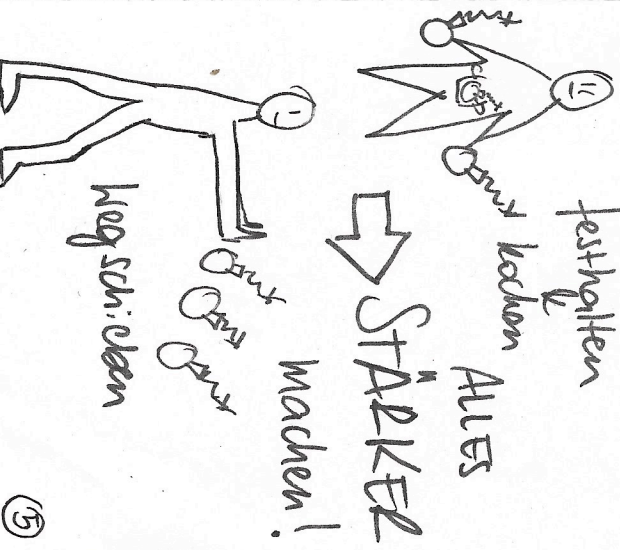 festhalten
&
kochen
ALLES
STÄRKER
machen!
Wegschieben
5